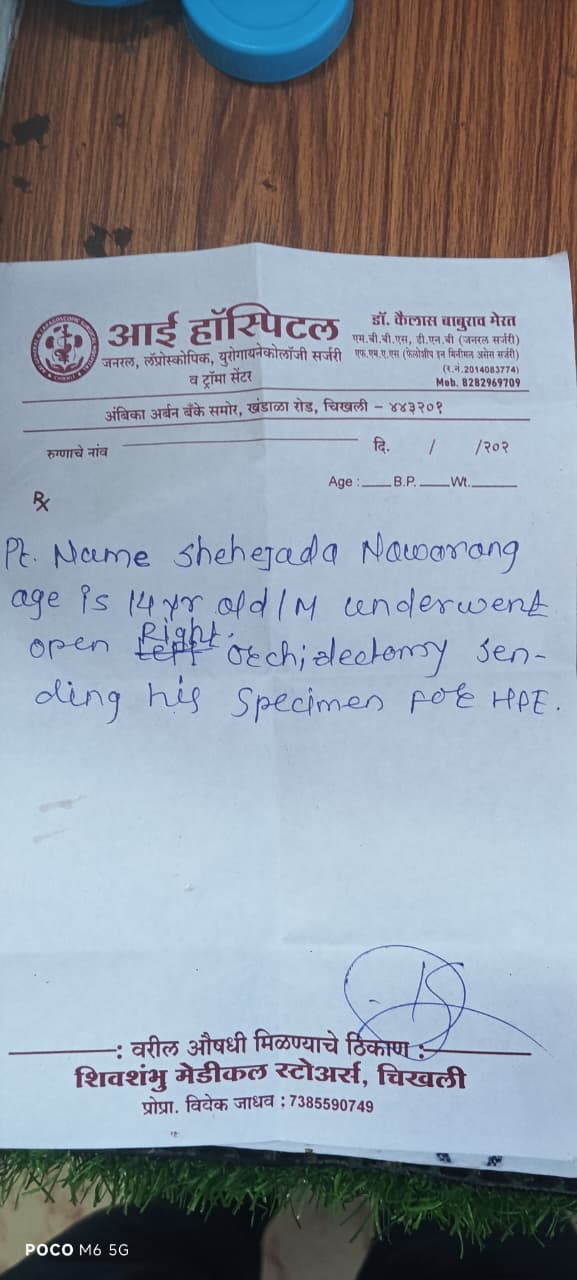 आई हॉस्पिटल
जनरल, लॅप्रोस्कोपिक, युरोगायनेकोलॉजी सर्जरी
व ट्रॉमा सेंटर
डॉ. कैलास बाबुराव मेरत
एम.बी.बी.एस, डी.एन.बी (जनरल सर्जरी)
एफ.एम.ए.एस (फेलोशीप इन मिनीमल अक्सेस सर्जरी)
(र.नं.2014083774)
Mob. 8282969709
अंबिका अर्बन बँके समोर, खंडाळा रोड, चिखली - ४४३२०१
रुग्णाचे नांव
दि. / /२०२
Age : B.P. Wt.
℞
Pt. Name Shehejada Nawarang
age is 14 yr old / M underwent
open Right orchidectomy sen-
ding his specimen for HPE.
: वरील औषधी मिळण्याचे ठिकाण :
शिवशंभु मेडीकल स्टोअर्स, चिखली
प्रोप्रा. विवेक जाधव : 7385590749
POCO M6 5G